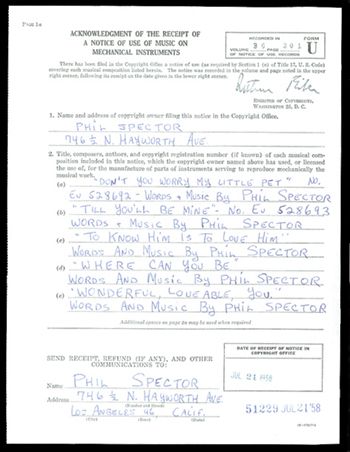 Page 1a
ACKNOWLEDGMENT OF THE RECEIPT OF
A NOTICE OF USE OF MUSIC ON
MECHANICAL INSTRUMENTS
RECORDED IN
FORM
VOLUME 30 PAGE 201
U
OF NOTICE OF USE RECORDS
There has been filed in the Copyright Office a notice of use (as required by Section 1 (e) of Title 17, U. S. Code)
covering each musical composition listed herein. The notice was recorded in the volume and page noted in the upper
right corner, following its receipt on the date given in the lower right corner.
REGISTER OF COPYRIGHTS,
WASHINGTON 25, D. C.
1. Name and address of copyright owner filing this notice in the Copyright Office.
PHIL SPECTOR
746 ½ N. HAYWORTH AVE.
2. Title, composers, authors, and copyright registration number (if known) of each musical com-
position included in this notice, which the copyright owner named above has used, or licensed
the use of, for the manufacture of parts of instruments serving to reproduce mechanically the
musical work.
(a) "DON'T YOU WORRY MY LITTLE PET" No.
EU 528692 - WORDS + MUSIC BY PHIL SPECTOR
(b) "TILL YOU'LL BE MINE" - No. EU 528693
WORDS + MUSIC BY PHIL SPECTOR
(c) - TO KNOW HIM IS TO LOVE HIM"
WORDS AND MUSIC BY PHIL SPECTOR
(d) - WHERE CAN YOU BE
WORDS AND MUSIC BY PHIL SPECTOR
(e) "WONDERFUL, LOVEABLE, YOU."
WORDS AND MUSIC BY PHIL SPECTOR
Additional spaces on page 2a may be used when required
SEND RECEIPT, REFUND (IF ANY), AND OTHER
COMMUNICATIONS TO:
Name PHIL SPECTOR
Address 746 ½ N. HAYWORTH AVE
(Number and Street)
LOS ANGELES 46, CALIF.
(City) (Zone) (State)
DATE OF RECEIPT OF NOTICE IN
COPYRIGHT OFFICE
JUL 21 1958
51229 JUL 21 '58